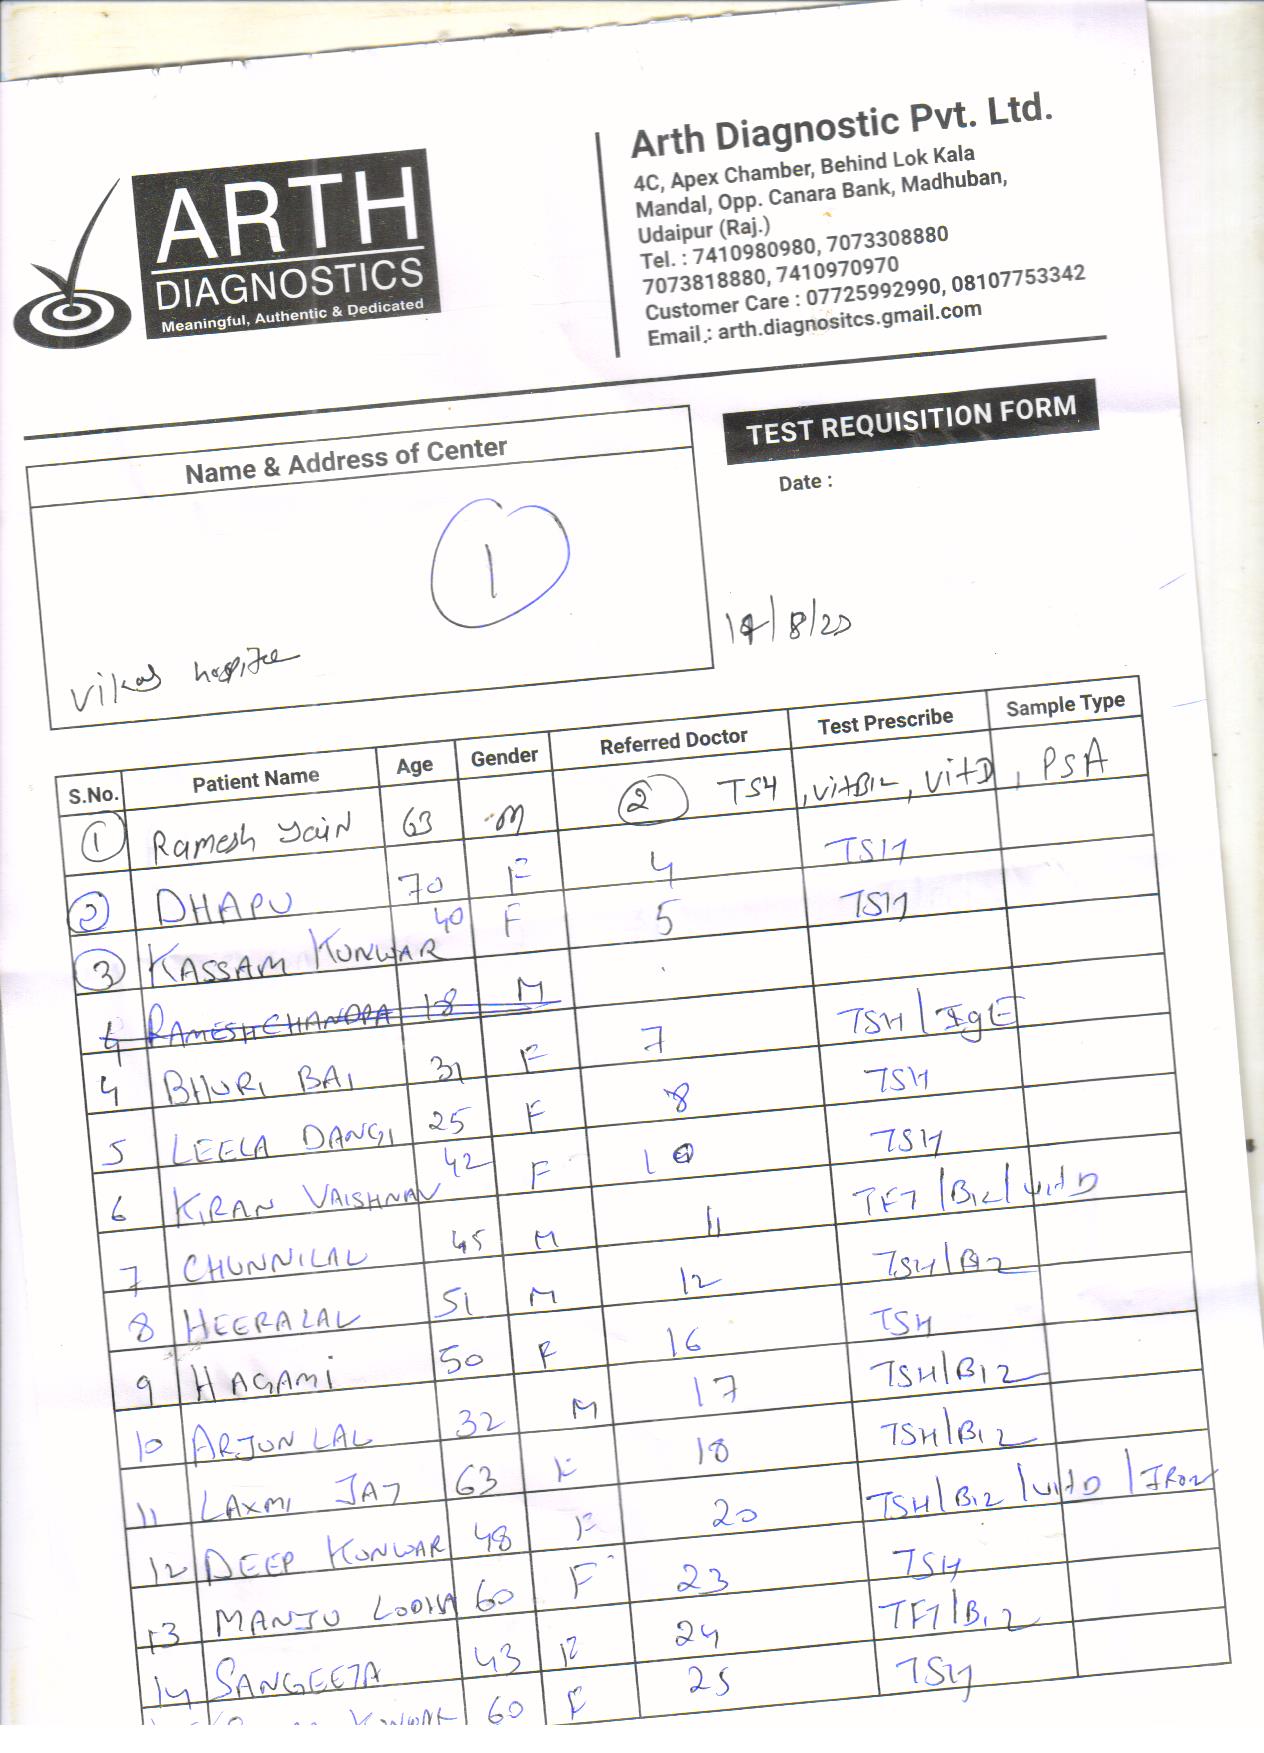 ARTH
DIAGNOSTICS
Meaningful, Authentic & Dedicated
Arth Diagnostic Pvt. Ltd.
4C, Apex Chamber, Behind Lok Kala
Mandal, Opp. Canara Bank, Madhuban,
Udaipur (Raj.)
Tel. : 7410980980, 7073308880
7073818880, 7410970970
Customer Care : 07725992990, 08107753342
Email : arth.diagnositcs.gmail.com
TEST REQUISITION FORM
Date :
/8/20
Name & Address of Center
1
Vikas
S.No. Patient Name Age Gender Referred Doctor Test Prescribe Sample Type
1 Ramesh Jain 63 M 2 TSH, VitB12, VitD, PSA
2 DHAPU 70 F 4 TSH
3 KASSAM KUNWAR 40 F 5 TSH
4 RAMESHCHANDRA 18 M
4 BHURI BAI 31 F 7 TSH/IgE
5 LEELA DANGI 25 F 8 TSH
6 KIRAN VAISHNAV 42 F 10 TSH
7 CHUNNILAL 45 M 11 TFT/B12/VitD
8 HEERALAL 51 M 12 TSH/B12
9 HAGAMI 50 F 16 TSH
10 ARJUN LAL 32 M 17 TSH/B12
11 LAXMI JAT 63 F 18 TSH/B12
12 DEEP KUNWAR 48 F 20 TSH/B12/VitD/IRON
13 MANJU LODHA 60 F 23 TSH
14 SANGEETA 43 F 24 TFT/B12
KUNWAR 60 F 25 TSH